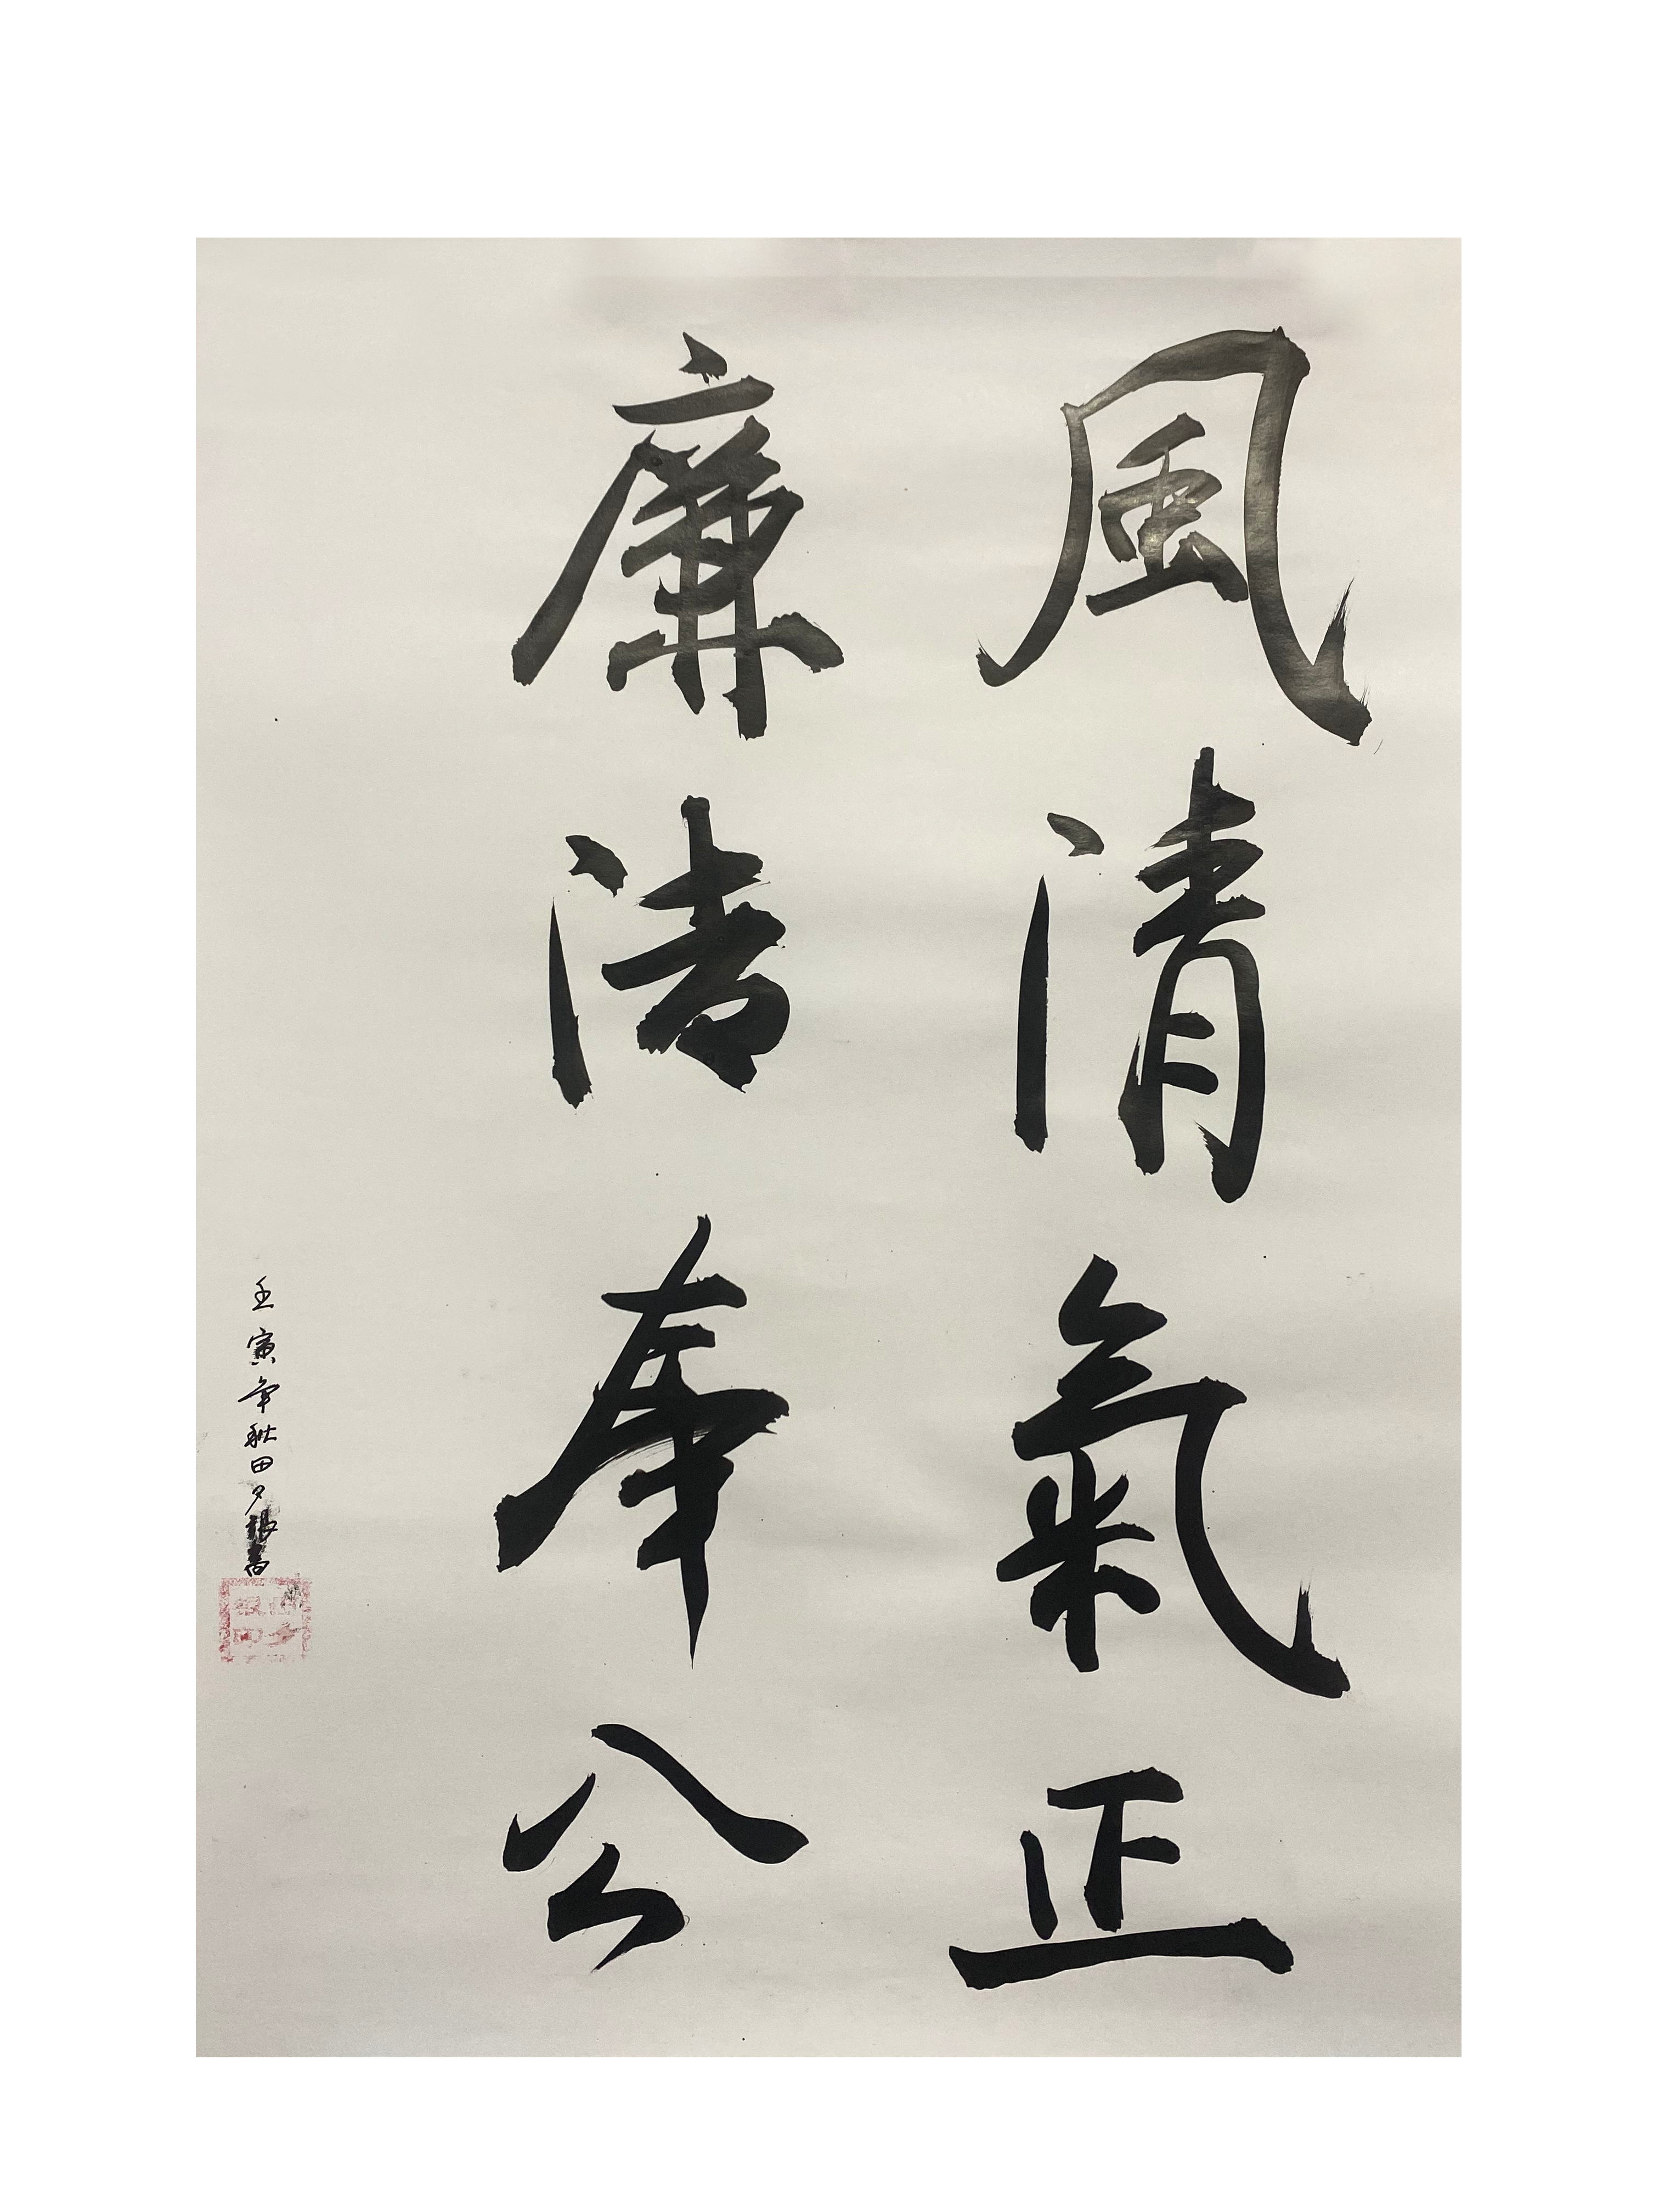 風清氣正
廉洁奉公
壬寅年秋田夕银書